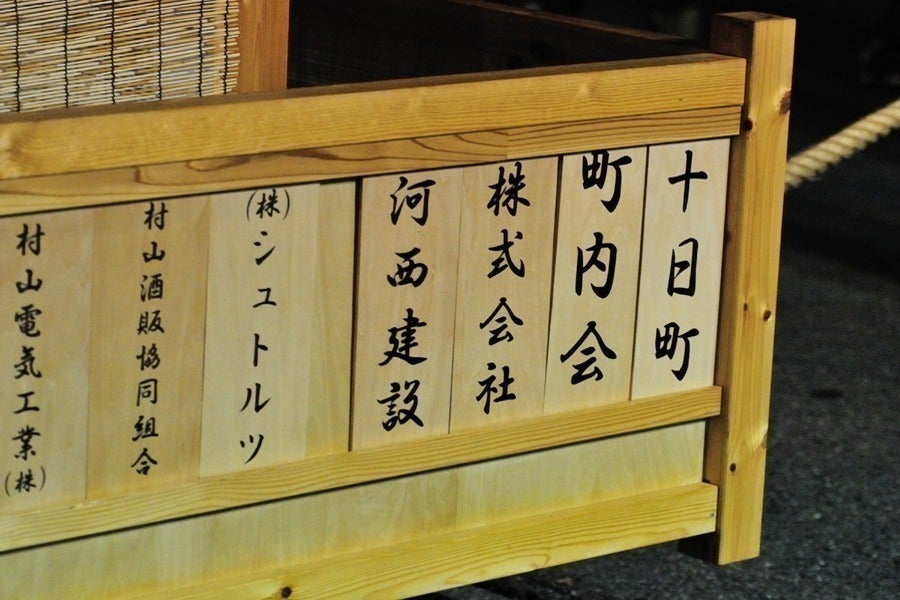 十日町
町内会
株式会社
河西建設
(株)シュトルツ
村山酒販協同組合
村山電気工業(株)